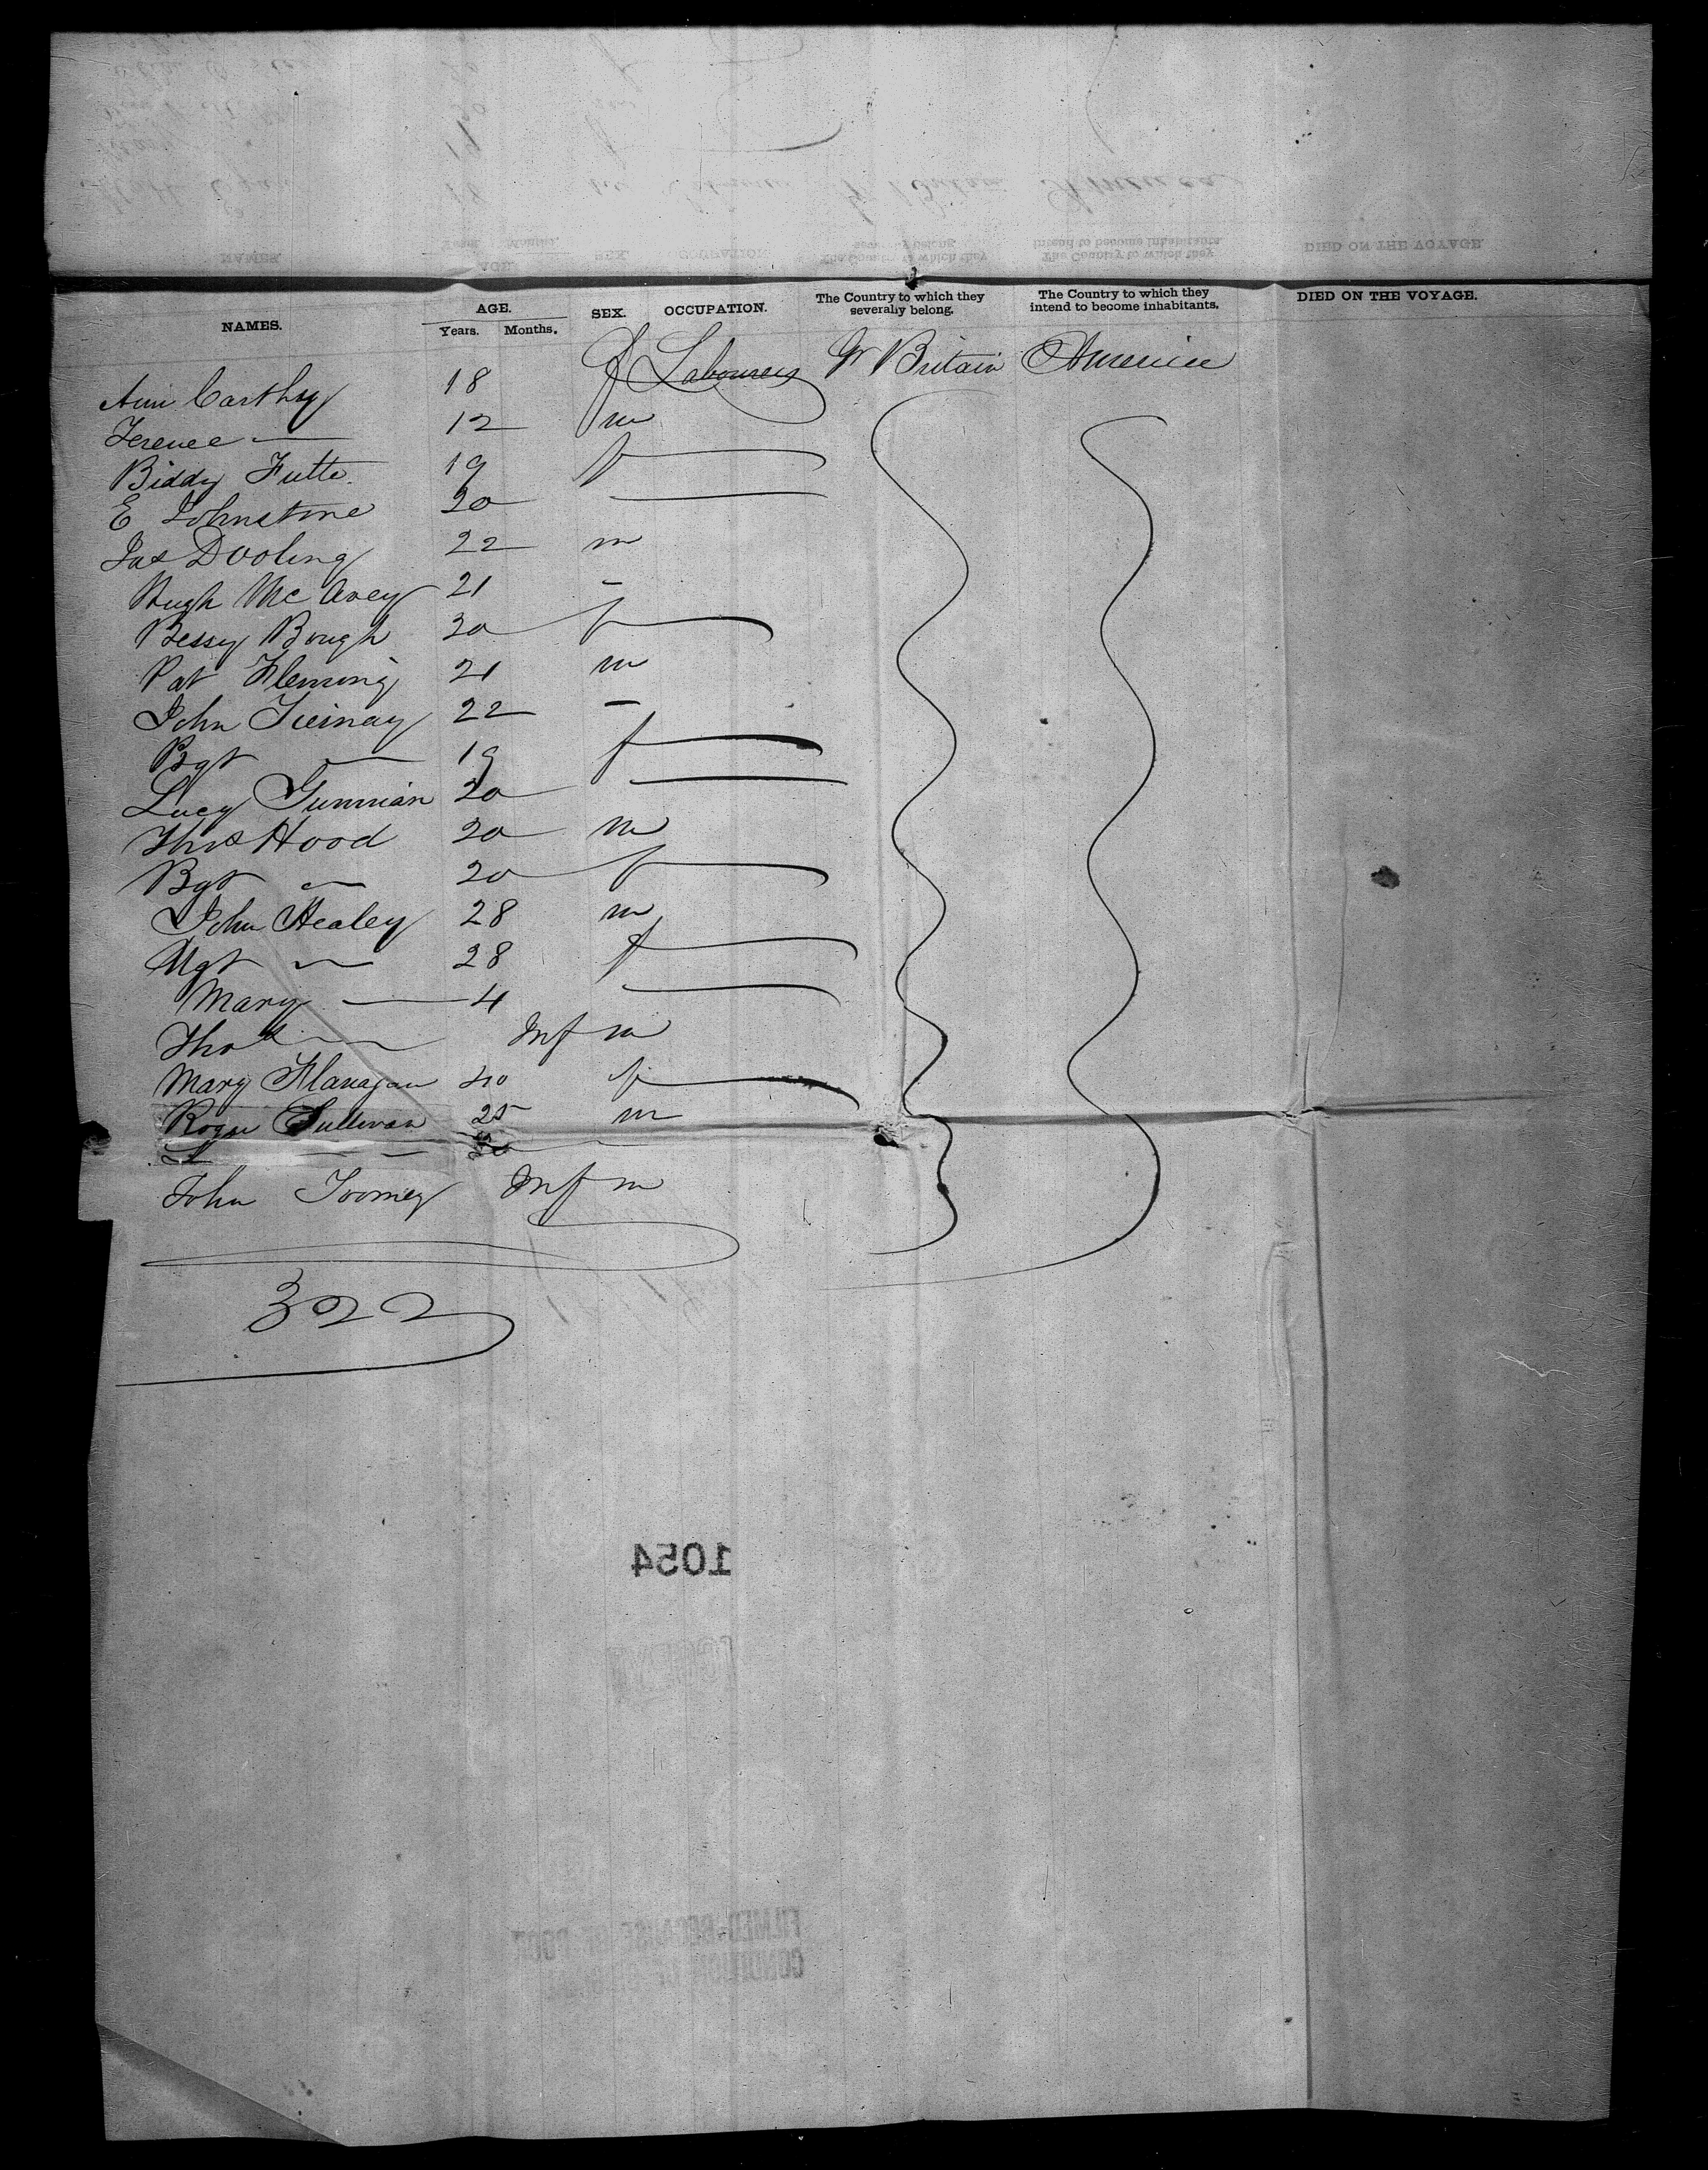 NAMES. AGE. SEX. OCCUPATION. The Country to which they severally belong. The Country to which they intend to become inhabitants. DIED ON THE VOYAGE.
Years. Months.
Ann Carthy 18 f Labourers Gr Britain America
Terence — 12 m
Biddy Futte 19 f
E Johnstone 20
Jas Dooling 22 m
Hugh McAvey 21 -
Bessy Bough 30 f
Pat Fleming 21 m
John Tiernay 22 -
Bgt — 19 f
Lucy 20
Thos Hood 20 m
Bgt — 20 f
John Healey 28 m
Mgt — 28 f
Mary — 4
Thos — Inf m
Mary Flanagan 40 f
Roger Sullivan 25 m
— —
John Toomey Inf m
322
1054
FILMED BECAUSE OF POOR
CONDITION OF ORIGINAL